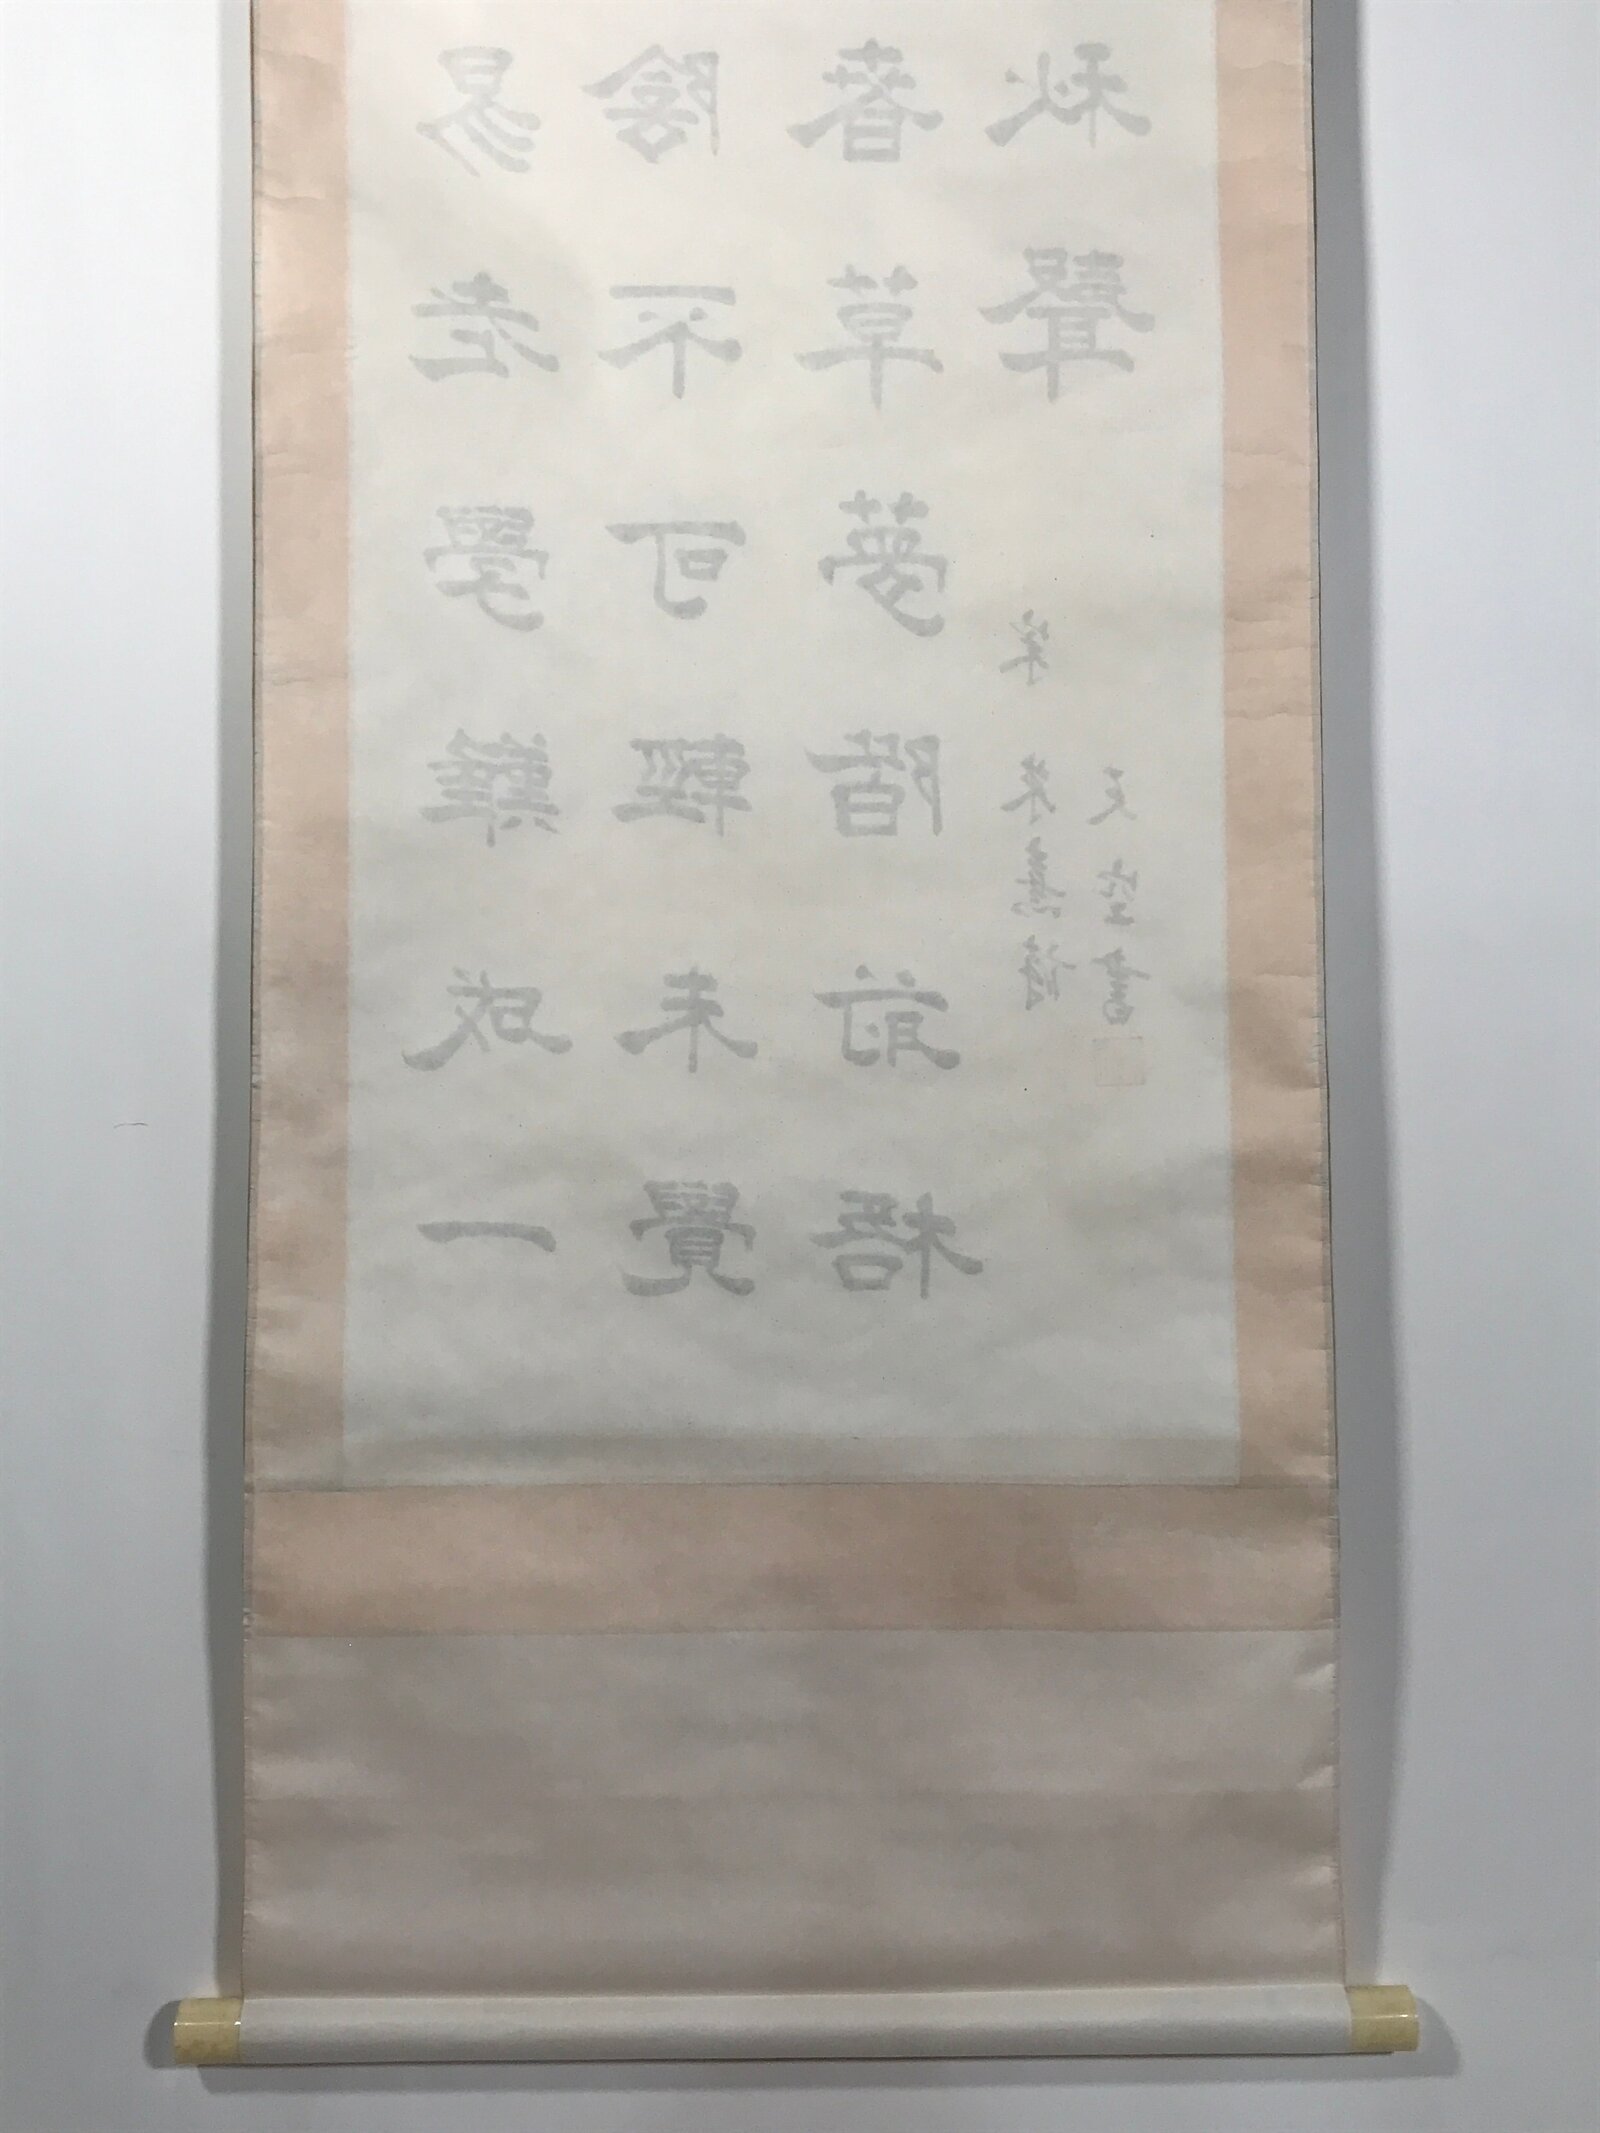 易老學難成一
陰不可輕未覺
春草夢階前梧
秋聲
朱熹詩
文 書